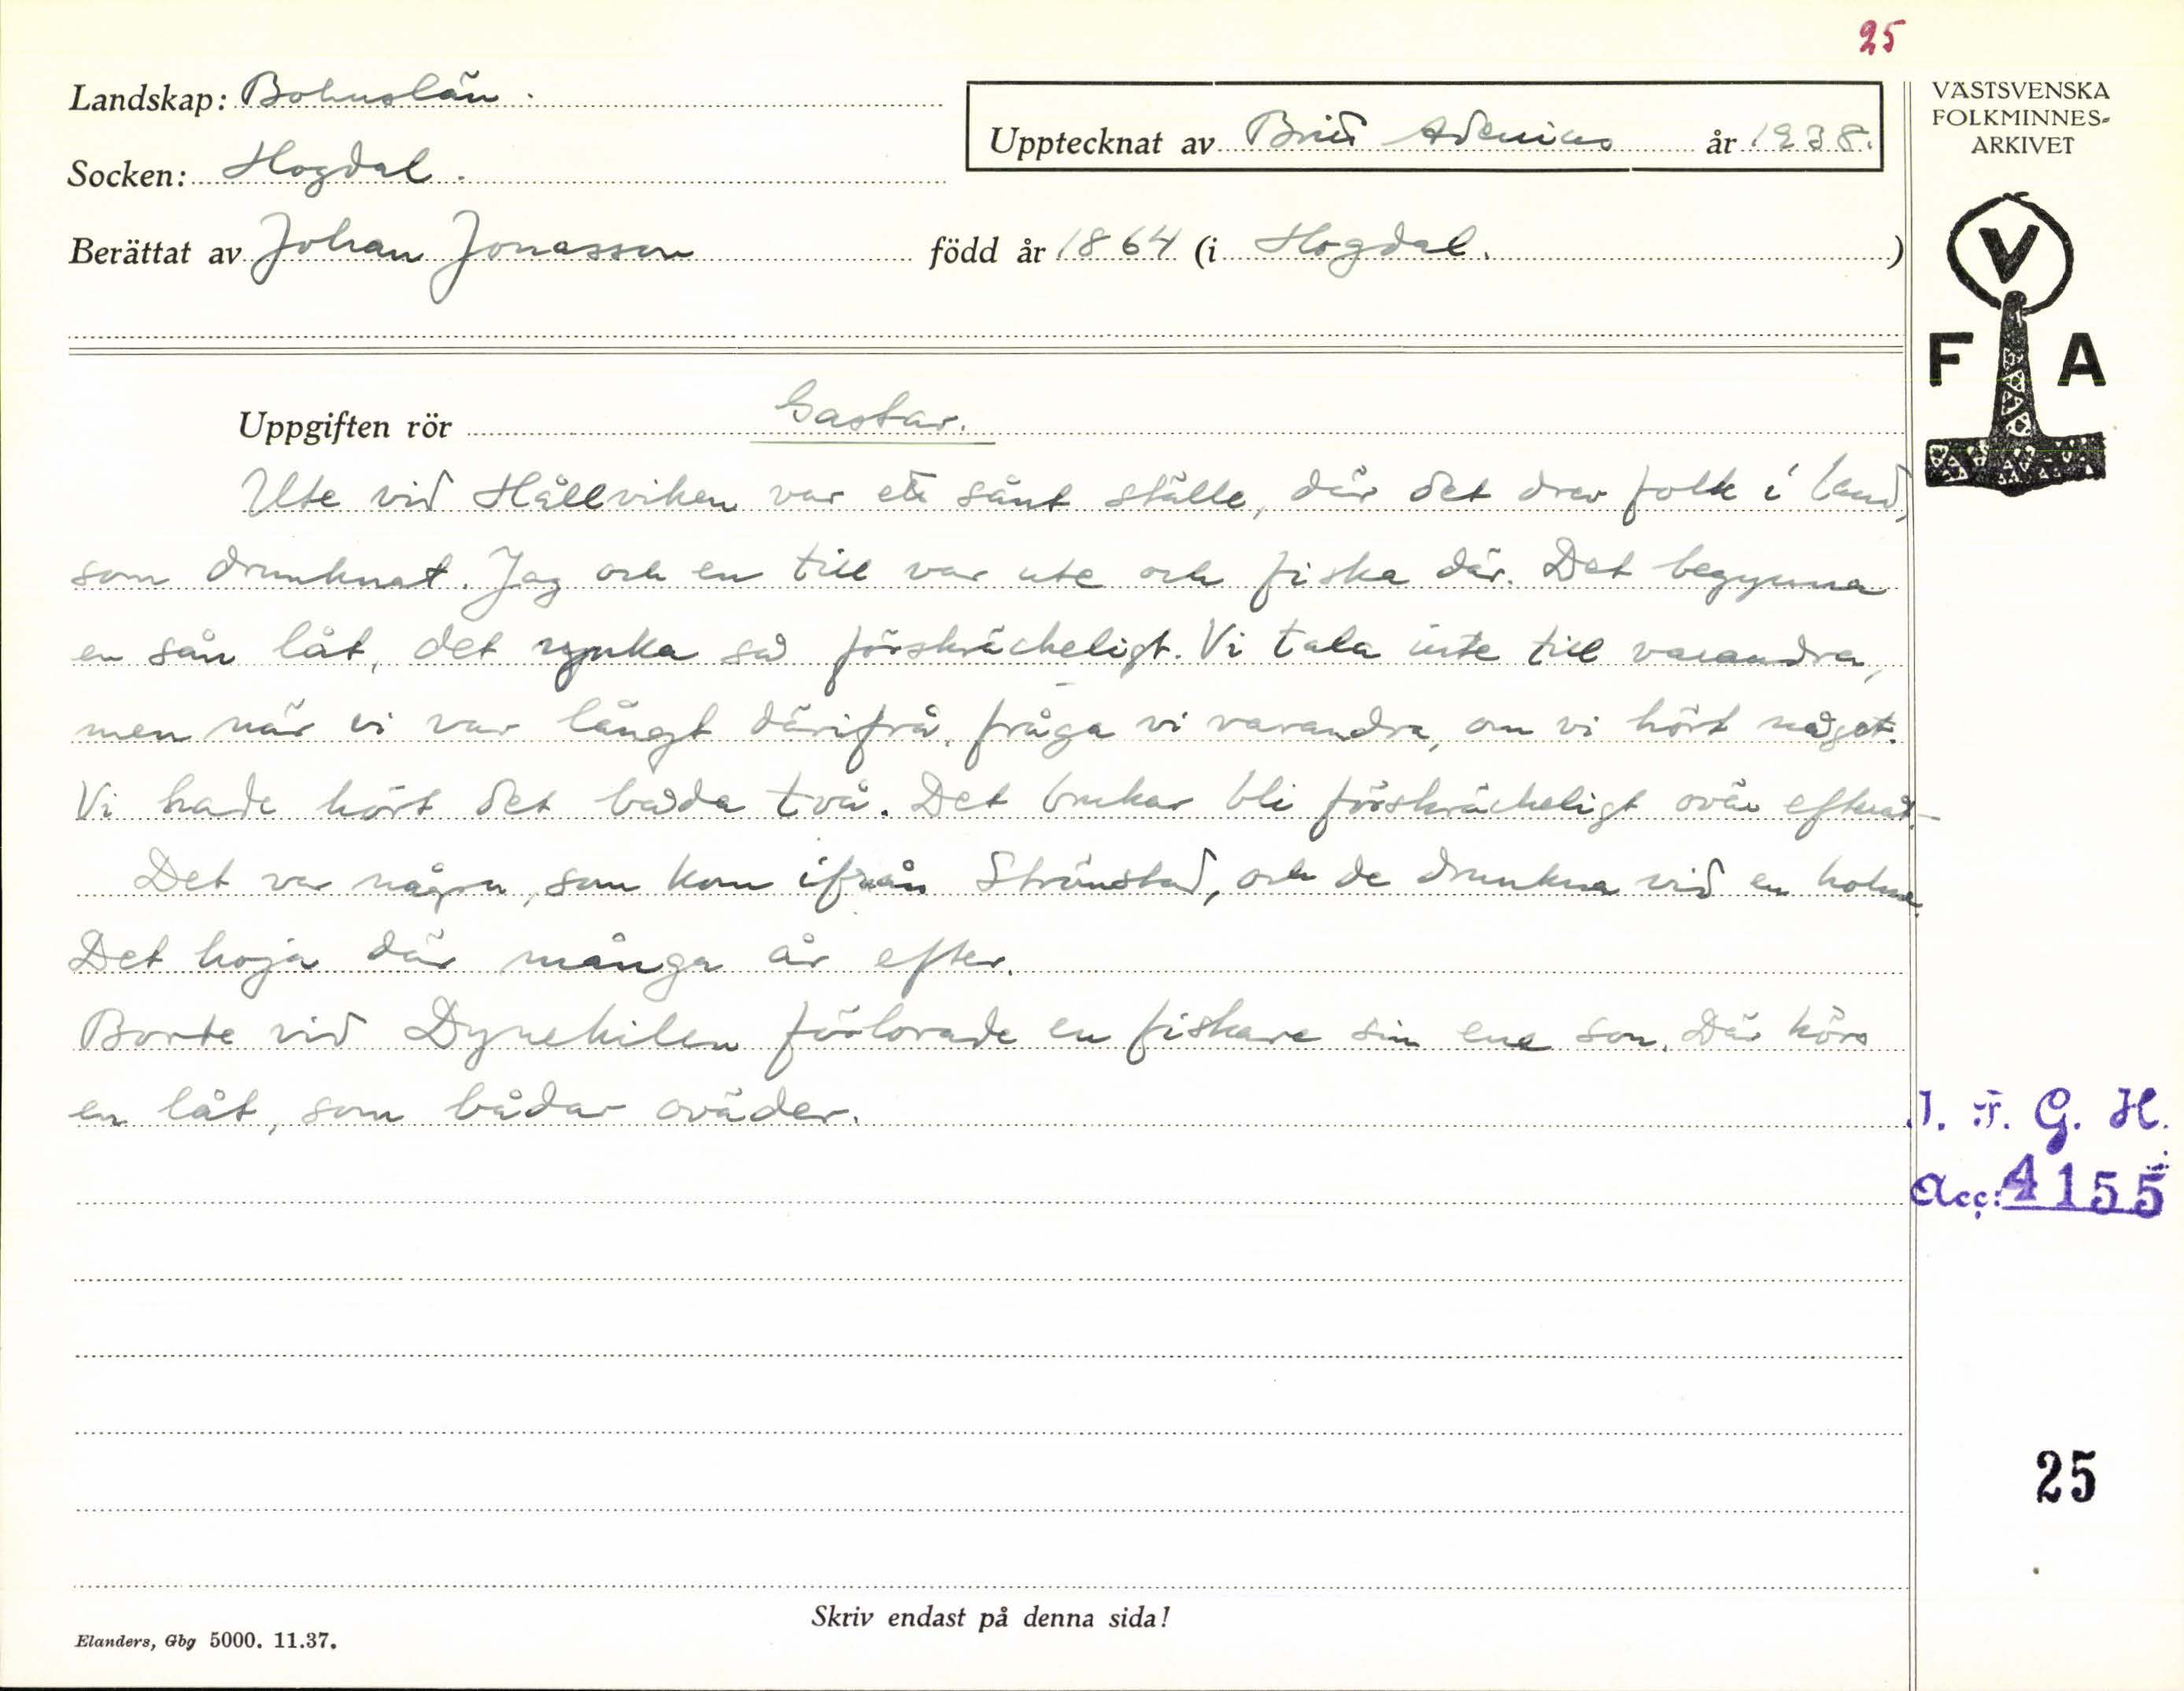 25
Landskap: Bohuslän.
VÄSTSVENSKA
FOLKMINNES-
ARKIVET
Upptecknat av Brita Adenius år 1938.
Socken: Hogdal.
Berättat av Johan Jonasson född år 1864 (i Hogdal.)
V
F A
Uppgiften rör Gastar.
Ute vid Hällviken var ett sånt ställe, där det drev folk i land,
som drunknat. Jag och en till var ute och fiska där. Det begynna
en sån låt, det rynka så förskräckeligt. Vi tala inte till varandra,
men när vi var långt därifrå, fråga vi varandra, om vi hört något.
Vi hade hört det båda två. Det brukar bli förskräckeligt oväe efteråt. -
Det var några, som kom ifrån Strömstad, och de drunkna vid en holme.
Det hoja där många år efter.
Borte vid Dynekilen förlorade en fiskare sin ene son. Där hörs
en låt, som bådar oväder.
I. F. G. H.
Acc: 4155
25
Skriv endast på denna sida!
Elanders, Gbg 5000. 11.37.